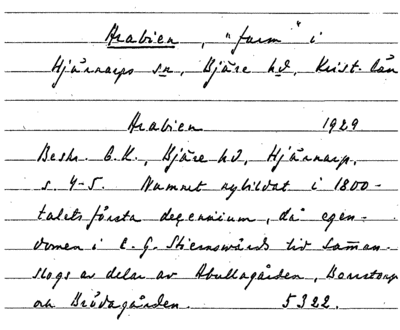 Arabien, "farm" i
Hjärnarps sn, Bjäre hd, Krist. län
Arabien 1929
Beskr. E.K., Bjäre hd, Hjärnarp,
s. 4-5. Namnet nybildat i 1800-
talets första decennium, då egen-
domen i C. G. Stiernswärds tid samman-
slogs av delar av Abullagården, Bonstorp
och Brödagården. 5322.